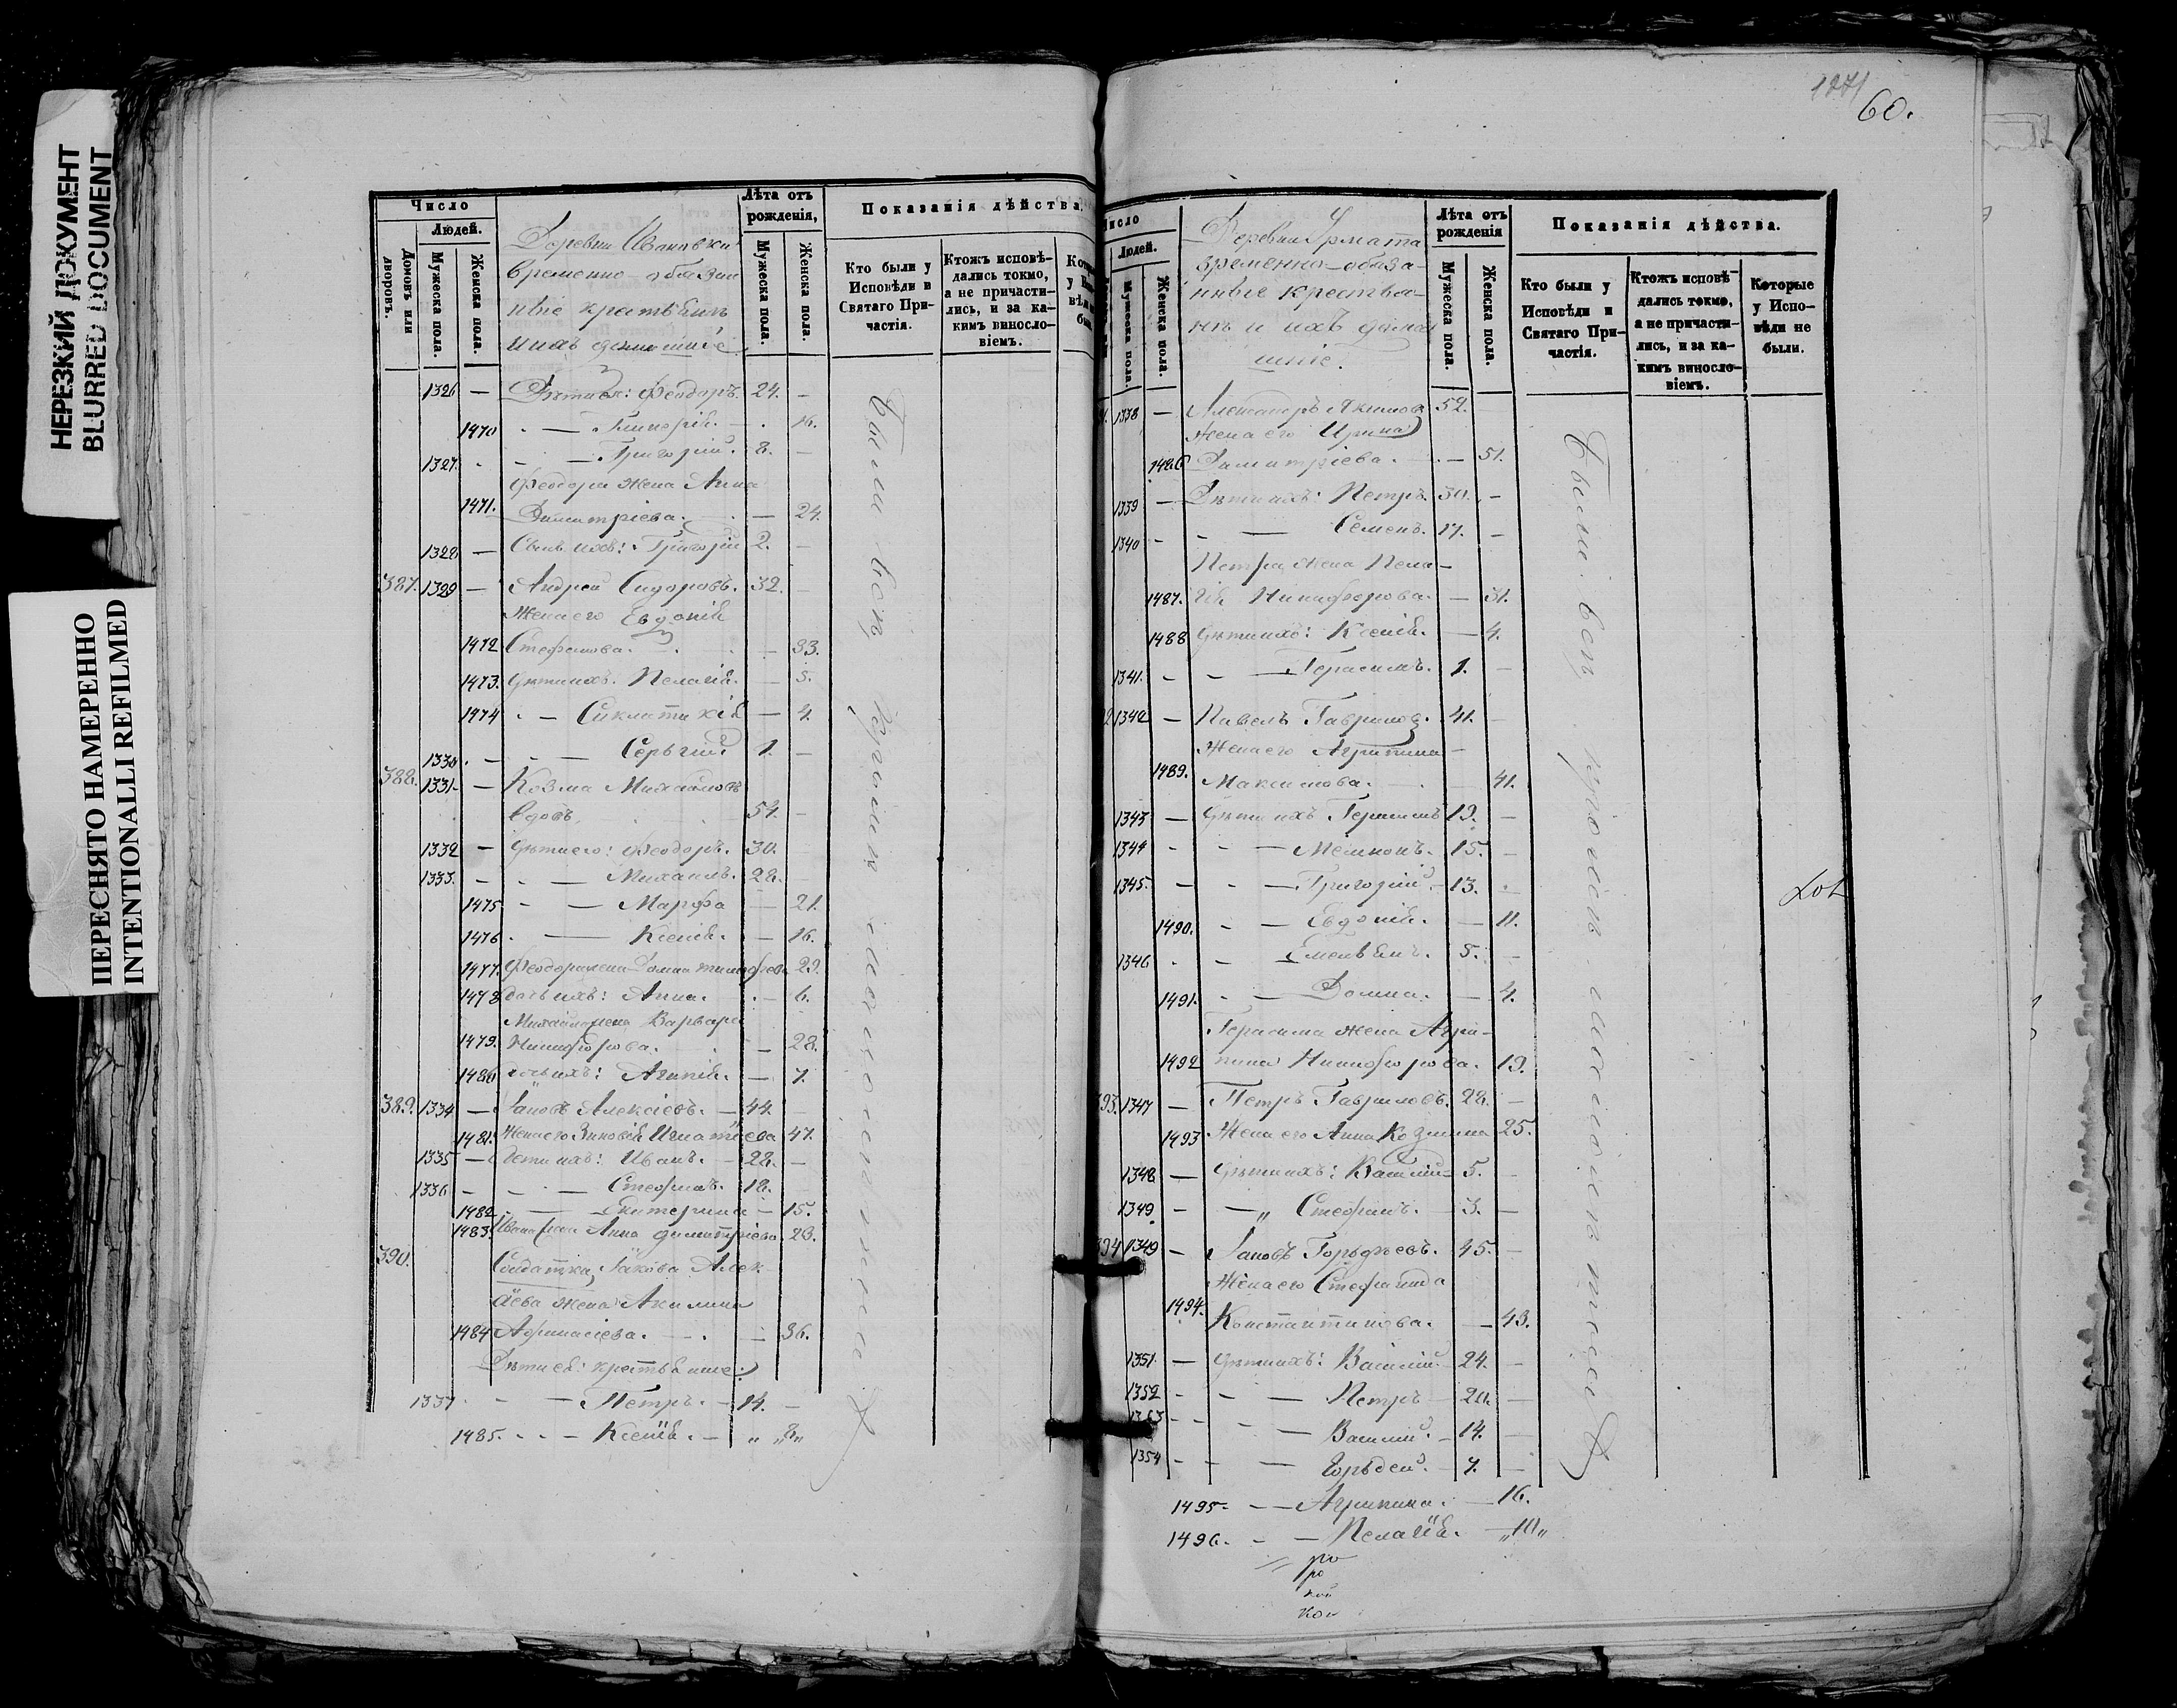 НЕРЕЗКИЙ ДОКУМЕНТ
BLURRED DOCUMENT
ПЕРЕСНЯТО НАМЕРЕННО
INTENTIONALLI REFILMED
Число
Людей.
Домовъ или дворовъ.
Мужеска пола.
Женска пола.
Деревни Ивановки
временно-обязан
ные крестьяне
и ихъ домашніе
Лѣта отъ рожденія,
Мужеска пола.
Женска пола.
Показанія дѣйства,
Кто были у Исповѣди и Святаго Причастія.
Ктожъ исповѣдались токмо, а не причастились, и за какимъ винословіемъ.
1326 — Дѣти ея: Феодоръ. 24. —
1470 — Гликерія. 16.
1327 — Григорій. 8. —
Феодора жена Анна
1471. Димитріева. — 24.
1328 — Сынъ ихъ: Григорій 2. —
387. 1329 — Андрей Сидоровъ. 32. —
Жена его Евдокія
1472 Стефанова. — 33.
1473. Дѣти ихъ: Пелагія. — 5.
1474 — Синклитикія — 4.
1330 — Сергій 1. —
388. 1331 — Козма Михайловъ
вдовъ. 54. —
1332 — Дѣти его: Феодоръ. 30.
1333. — Михаилъ. 22.
1475 — Марфа — 21.
1476 — Ксенія. — 16.
1477. Феодора жена Домна Тимофеева 29.
1478 дочь ихъ: Анна. — 6.
Михаила жена Варвара
1479. Никифорова. — 28.
1480 дочь ихъ: Агапія. — 7.
389. 1334 — Іаковъ Алексіевъ. — 44. —
1481. Жена его Зиновія Игнатіева 47.
1335 — Дети ихъ: Иванъ. — 22. —
1336 — Стефанъ. 18.
1482 — Екатерина — 15.
1483. Ивана жена Анна Димитріева. 23.
390. Солдатка, Іакова Алек
сіева жена Акилина
1484 Афанасіева. — 36.
Дѣти ея: крестьянине
1337 — Петръ. — 14. —
1485. — Ксенія. — „ „8„
были всѣ
1271
60.
Число
Людей.
Мужеска пола.
Женска пола.
Деревни Урмата
временно-обяза-
нные крестья-
не и ихъ домаш
шніе.
Лѣта отъ рожденія
Мужеска пола.
Женска пола.
Показанія дѣйства.
Кто были у Исповѣди и Святаго Причастія.
Ктожъ исповѣдались токмо, а не причастились, и за какимъ винословіемъ.
Которые у Исповѣди не были.
1338 — Александръ Акимовъ 52.
Жена его Ирина
1486 Димитріева. — 51.
1339 — Дѣти ихъ: Петръ. 30. —
1340 — Семенъ. 17. —
Петра жена Пела-
1487. гія Никифорова. — 31.
1488 Дѣти ихъ: Ксенія. — 4.
1341. — Герасимъ. 1. —
1342 — Павелъ Гавриловъ. 41. —
Жена его Агрипина
1489. Максимова. — 41.
1343 — Дѣти ихъ Герасимъ 19. —
1344 — 15. —
1345. — Григорій. — 13.
1490. — Евдокія. — 11.
1346 — Емельянъ. 5. —
1491. — Домна. — 4.
Герасима жена Агри-
1492 пина Никифорова. 19.
393. 1347 — Петръ Гавриловъ. 28. —
1493 Жена его Анна Козмина 25.
1348 — Дѣти ихъ: Василій 5. —
1349 — „ Стефанъ. 3. —
394 1349 — Іаковъ Гордѣевъ. 45. —
Жена его Стефанида
1494. Константинова. — 43.
1351. — Дѣти ихъ: Василій. 24. —
1352 — Петръ 20. —
1353 — Василій. — 14. —
1354 — Гордей. 7. —
1495. — Агрипина. — 16.
1496. — Пелагія. — „10„
были всѣ